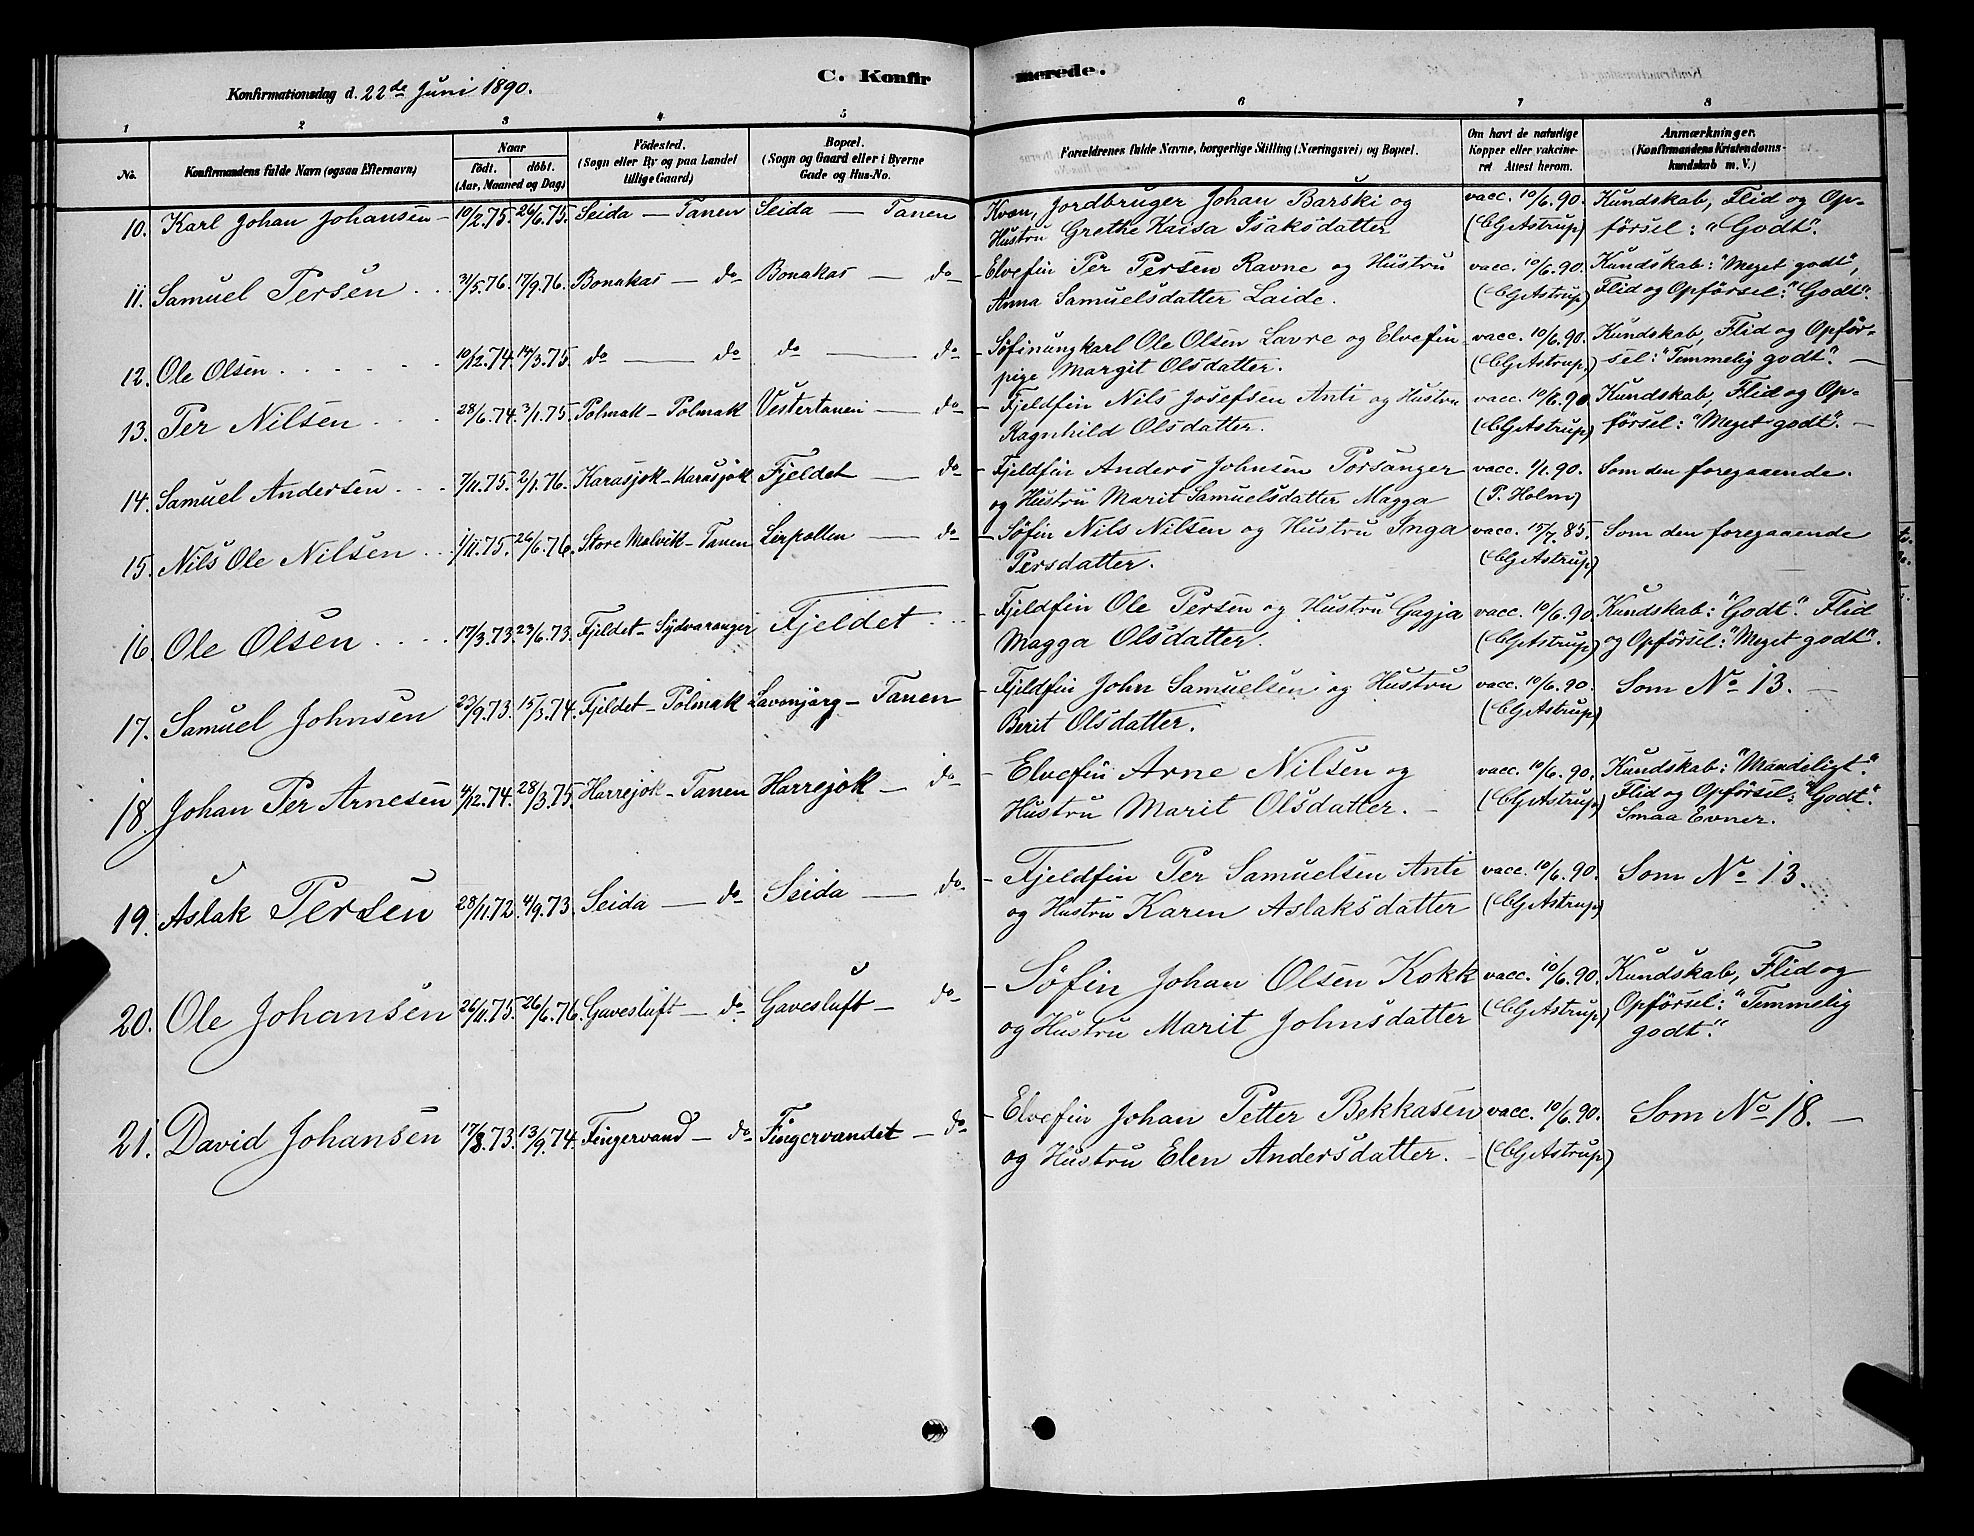 C. Konfirmerede.
Konfirmationsdag d. 22de Juni 1890.
1 2 3 4 5 6 7 8
No. Konfirmandens fulde Navn (ogsaa Efternavn) Naar födt. döbt. (Aar, Maaned og Dag) Födested. (Sogn eller By og paa Landet tillige Gaard) Bopæl. (Sogn og Gaard eller i Byerne Gade og Hus-No. Forældrenes fulde Navne, borgerlige Stilling (Næringsvei) og Bopæl. Om havt de naturlige Kopper eller vakcineret. Attest herom. Anmærkninger. (Konfirmandens Kristendomskundskab m. V.)
10. Karl Johan Johansen - 10/2.75. 26/6.75. Seida — Tanen Seida — Tanen Kvæn, Jordbruger Johan Barski og vacc. 10/6.90. Kundskab, Flid og Op-
Hustru Grethe Kaisa Isaksdatter (CG Astrup) försel: "Godt".
11. Samuel Persen . . 31/5.76. 17/9.76. Bonakas — do Bonakas — do - Elvefin Per Persen Ravne og Hustru vacc. 10/6.90. Kundskab: "Meget godt",
Anna Samuelsdatter Laide. (CG Astrup) Flid og Opförsel: "Godt".
12. Ole Olsen . . . . . . 10/12.74. 14/3.75. do — do do — do - Söfinungkarl Ole Olsen Lavre og Elvefin- vacc. 10/6.90. Kundskab, Flid og Opför-
pige Margit Olsdatter. (CG Astrup.) sel: "Temmelig godt". —
13. Per Nilsen . . . 28/6.74. 3/1.75. Polmak - Polmak Vestertanen — do - Fjeldfin Nils Josefsen Anti og Hustru vacc. 10/6.90 Kundskab, Flid og Op-
Ragnhild Olsdatter. (CG Astrup) försel: "Meget godt". —
14. Samuel Andersen . . . 7/11.75. 2/1.76. Karasjok - Karasjok Fjeldet — do - Fjeldfin Anders Johnsen Porsanger vacc. 1/1.90. Som den foregaaende.
og Hustru Marit Samuelsdatter Magga (P. Holm)
15. Nils Ole Nilsen . . . 1/11.75. 26/6.76. Store Molvik - Tanen Lerpollen — do - Söfin Nils Nilsen og Hustru Inga vacc. 15/7.85. Som den foregaaende
Persdatter. (CG Astrup)
16. Ole Olsen . . . . 17/3.73. 23/6.73. Fjeldet - Sydvaranger Fjeldet . . . Fjeldfin Ole Persen og Hustru Gagja vacc. 10/6.90. Kundskab: "Godt". Flid
Magga Olsdatter. (CG Astrup) og Opförsel: "Meget godt".
17. Samuel Johnsen 23/9.73. 15/3.74. Fjeldet - Polmak Lavonjarg - Tanen - Fjeldfin John Samuelsen og Hustru vacc. 10/6.90. Som No 13. —
Berit Olsdatter. (CG Astrup)
18. Johan Per Arnesen 4/12.74. 28/3.75. Harrejok - Tanen Harrejok — do - Elvefin Arne Nilsen og vacc. 10/6.90. Kundskab: "Maadeligt".
Hustru Marit Olsdatter. — (CG Astrup) Flid og Opförsel: "Godt".
Smaa Evner.
19. Aslak Persen 28/11.72. 4/9.73. Seida — do Seida — do - Fjeldfin Per Samuelsen Anti vacc. 10/6.90. Som No 13.
og Hustru Karen Aslaksdatter (CG Astrup)
20. Ole Johansen 26/11.75. 26/6.76. Gavesluft — do Gavesluft — do - Söfin Johan Olsen Kokk vacc. 10/6.90. Kundskab, Flid og
og Hustru Marit Johnsdatter (CG Astrup) Opförsel: "Temmelig
godt".
21. David Johansen 17/8.73. 13/9.74. Fingervand — do Fingervandet — do - Elvefin Johan Petter Bekkasen vacc. 10/6.90. Som No 18. —
og Hustru Elen Andersdatter. — (CG Astrup)